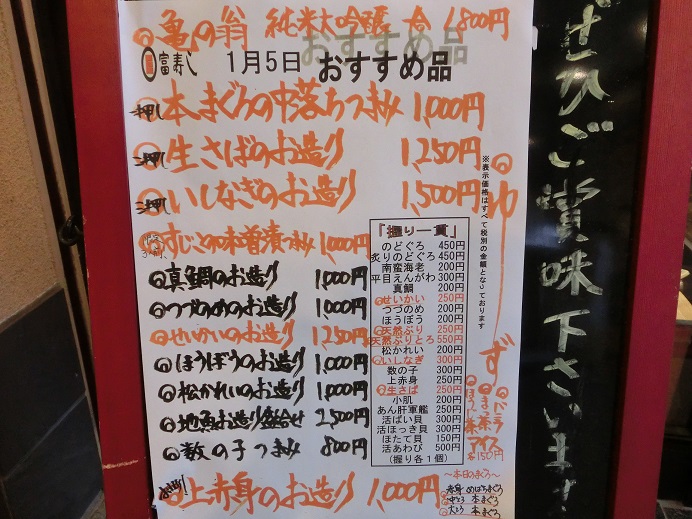 亀の翁 純米大吟醸 一合 1,800円
富寿し 1月5日 おすすめ品
一押し 本まぐろの中落ちつまみ 1,000円
二押し 生さばのお造り 1,250円
三押し いしなぎのお造り 1,500円
すじこの味噌漬つまみ 1,000円
真鯛のお造り 1,000円
つづのめのお造り 1,000円
せいかいのお造り 1,250円
ほうぼうのお造り 1,000円
松かれいのお造り 1,000円
地魚お造り盛合せ 2,500円
数の子つまみ 800円
お得! 上赤身のお造り 1,000円
「握り一貫」
のどぐろ 450円
炙りのどぐろ 450円
南蛮海老 200円
平目えんがわ 300円
真鯛 200円
せいかい 250円
つづのめ 200円
ほうぼう 200円
天然ぶり 250円
天然ぶりとろ 550円
松かれい 200円
いしなぎ 300円
数の子 300円
上赤身 250円
生さば 250円
小肌 200円
あん肝軍艦 250円
活ばい貝 300円
活ほっき貝 300円
ほたて貝 150円
活あわび 500円
(握り各1個)
※表示価格はすべて税別の金額となっております
ゆず
バニラ
まっ茶
ほうじ茶
アイス
各150円
〜本日のまぐろ〜
赤身 めばちまぐろ
中とろ 本まぐろ
大とろ 本まぐろ
ぜひご賞味下さいませ